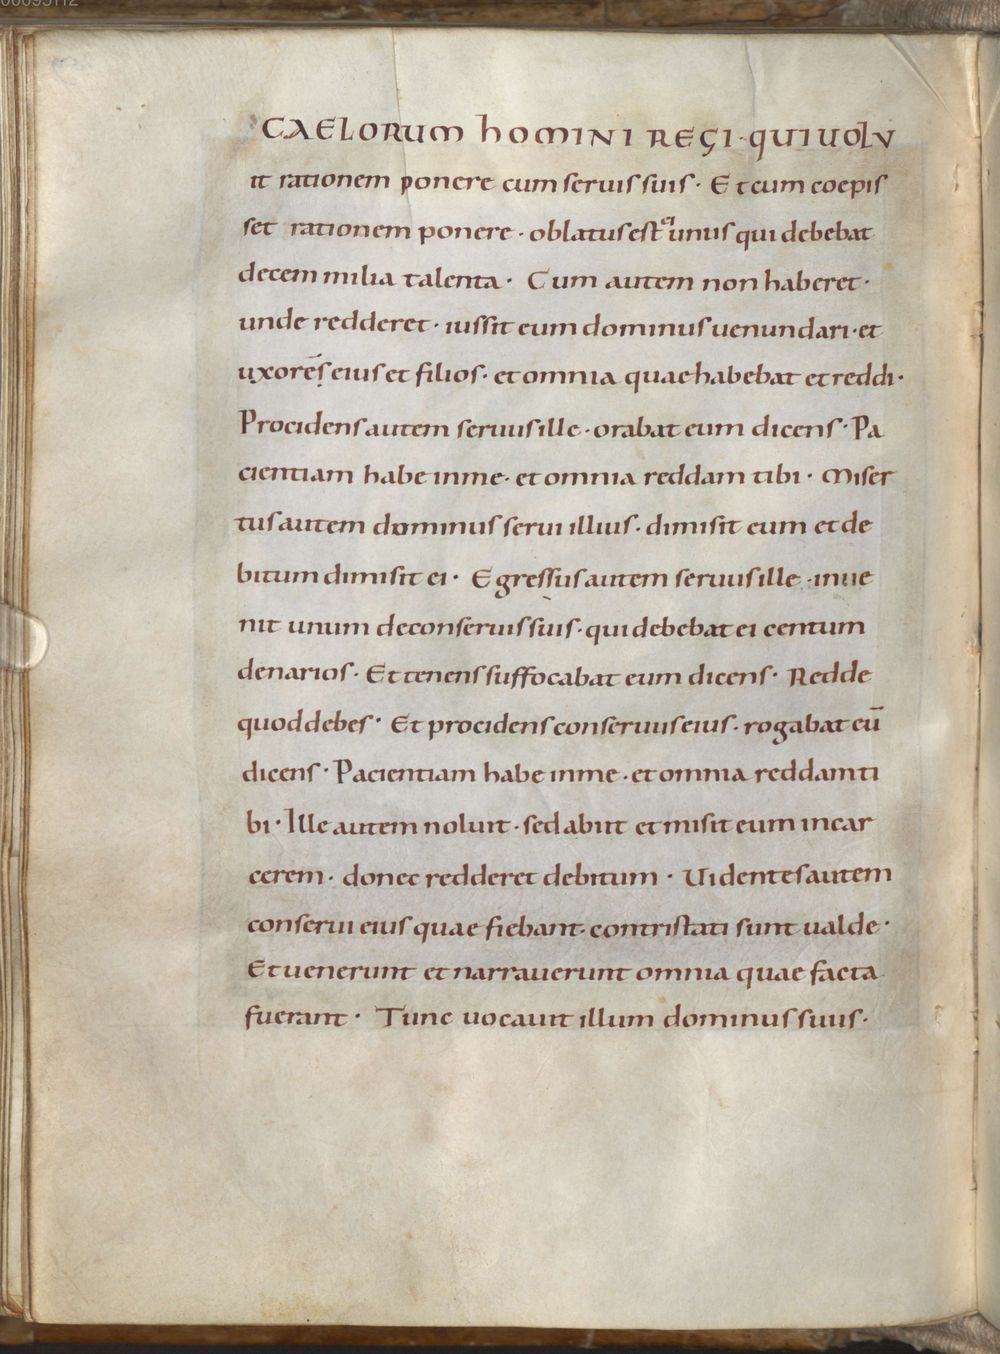 CAELORUM hOMINI REGI · QUIUOLU
it rationem ponere cum seruis suis · Et cum coepis
set rationem ponere · oblatus est ei unus qui debebat
decem milia talenta · Cum autem non haberet ·
unde redderet · iussit eum dominus uenundari · et
uxorẹ̄ṣ eius et filios · et omnia quae habebat et reddi ·
Procidens autem seruus ille · orabat eum dicens · Pa
cientiam habe in me · et omnia reddam tibi · Miser
tus autem dominus serui illius · dimisit eum et de
bitum dimisit ei · Egressus autem seruus ille · inue
nit unum de conseruis suis · qui debebat ei centum
denarios · Et tenens suffocabat eum dicens · Redde
quod debes · Et procidens conseruus eius · rogabat eū
dicens · Pacientiam habe in me · et omnia reddam ti
bi · Ille autem noluit · sed abiit et misit eum in car
cerem · donec redderet debitum · Uidentes autem
conserui eius quae fiebant · contristati sunt ualde ·
Et uenerunt et narrauerunt omnia quae facta
fuerant · Tunc uocauit illum dominus suus ·